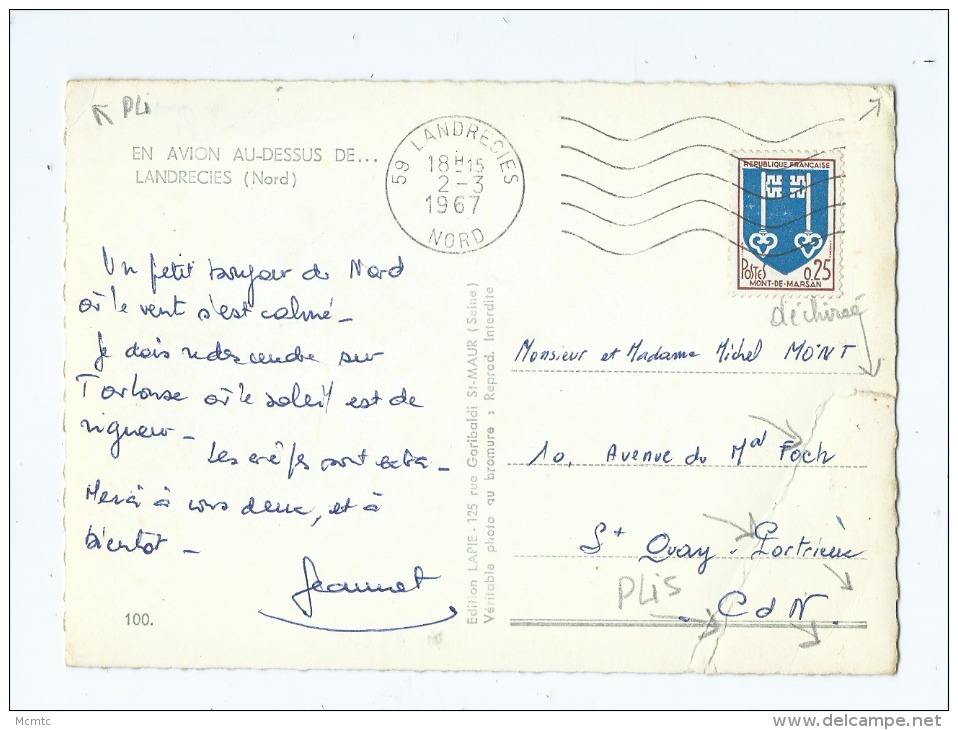 Pli
EN AVION AU-DESSUS DE...
LANDRECIES (Nord)
59 LANDRECIES
18H15
2-3
1967
NORD
REPUBLIQUE FRANÇAISE
POSTES 0.25
MONT-DE-MARSAN
Un petit bonjour du Nord
où le vent s'est calmé -
Je dois redescendre sur
Toulouse où le soleil est de
rigueur -
Les crêpes sont extra -
Merci à vous deux, et à
bientôt -
Jeannet
100.
Edition LAPIE - 125 rue Garibaldi St-MAUR (Seine)
Véritable photo au bromure : Reprod. Interdite
déchirée
Monsieur et Madame Michel MONT
10, Avenue du Mal Foch
St Quay - Portrieux
PLIS
- C d N.
Mcmtc
http://www.delcampe.net